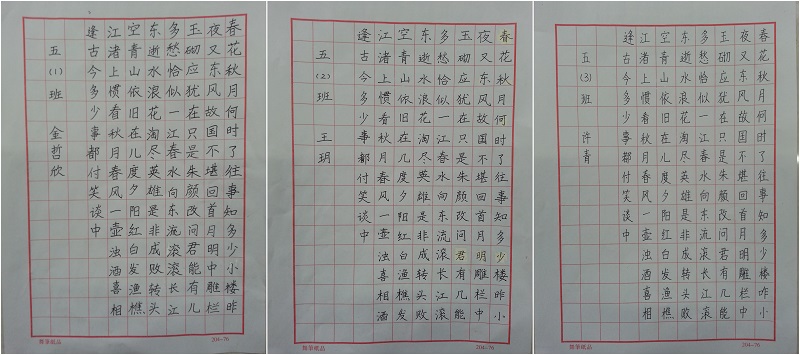 春花秋月何时了往事知多少小楼昨
夜又东风故国不堪回首月明中雕栏
玉砌应犹在只是朱颜改问君能有几
多愁恰似一江春水向东流滚滚长江
东逝水浪花淘尽英雄是非成败转头
空青山依旧在几度夕阳红白发渔樵
江渚上惯看秋月春风一壶浊酒喜相
逢古今多少事都付笑谈中
五(1)班 金哲欣
雅笔纸品 204-76
春花秋月何时了往事知多少楼昨小
夜又东风故国不堪回首月明雕栏中
玉砌应犹在只是朱颜改问君有几能
多愁恰似一江春水向东流滚长江滚
东逝水浪花淘尽英雄是非成转头败
空青山依旧在几度夕阳红白渔樵发
江渚上惯看秋月春风一壶浊喜相酒
逢古今多少事都付笑谈中
五(2)班 王玥
雅笔纸品 204-76
春花秋月何时了往事知多少楼昨小
夜又东风故国不堪回首月明雕栏中
玉砌应犹在只是朱颜改问君有几能
多愁恰似一江春水向东流滚长江滚
东逝水浪花淘尽英雄是非成转头败
空青山依旧在几度夕阳红白发渔樵
江渚上惯看秋月春风一壶浊酒喜相
逢古今多少事都付笑谈中
五(3)班 许青
雅笔纸品 204-76